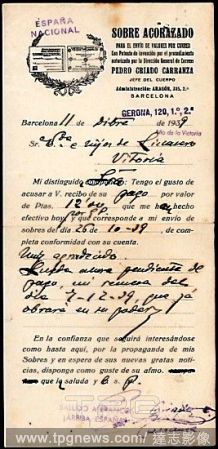 ESPAÑA
NACIONAL
SOBRE ACORAZADO
PARA EL ENVIO DE VALORES POR CORREO
Con Patente de invención por el procedimiento
autorizado por la Dirección General de Correos
PEDRO CRIADO CARRANZA
JEFE DEL CUERPO
Administración: ARAGÓN, 315, 2.º
BARCELONA
GERONA, 120, 1.º, 2.ª
Barcelona 11 de Dibre de 1939
Sr. e Hijos de Linacero
Vitoria
Mi distinguido Tengo el gusto de
acusar a V. recibo de su pago por valor
de Ptas. 12 que me
efectivo hoy y que corresponde a mi envío de
sobres del día 26 10-39 de
completa conformidad con su cuenta.
Muy agradecido
Queda ahora pendiente de
pago, mi remesa del
día 7-12-39, que ya
obrará en su poder.
En la confianza que seguirá interesándose
como hasta aquí, por la propaganda de mis
Sobres y en espera de sus gratas noticias,
disponga como guste de su afmo.
que le saluda y
SALUDO A FRANCO
¡ARRIBA ESPAÑA!
www.tpgnews.com/ 達志影像